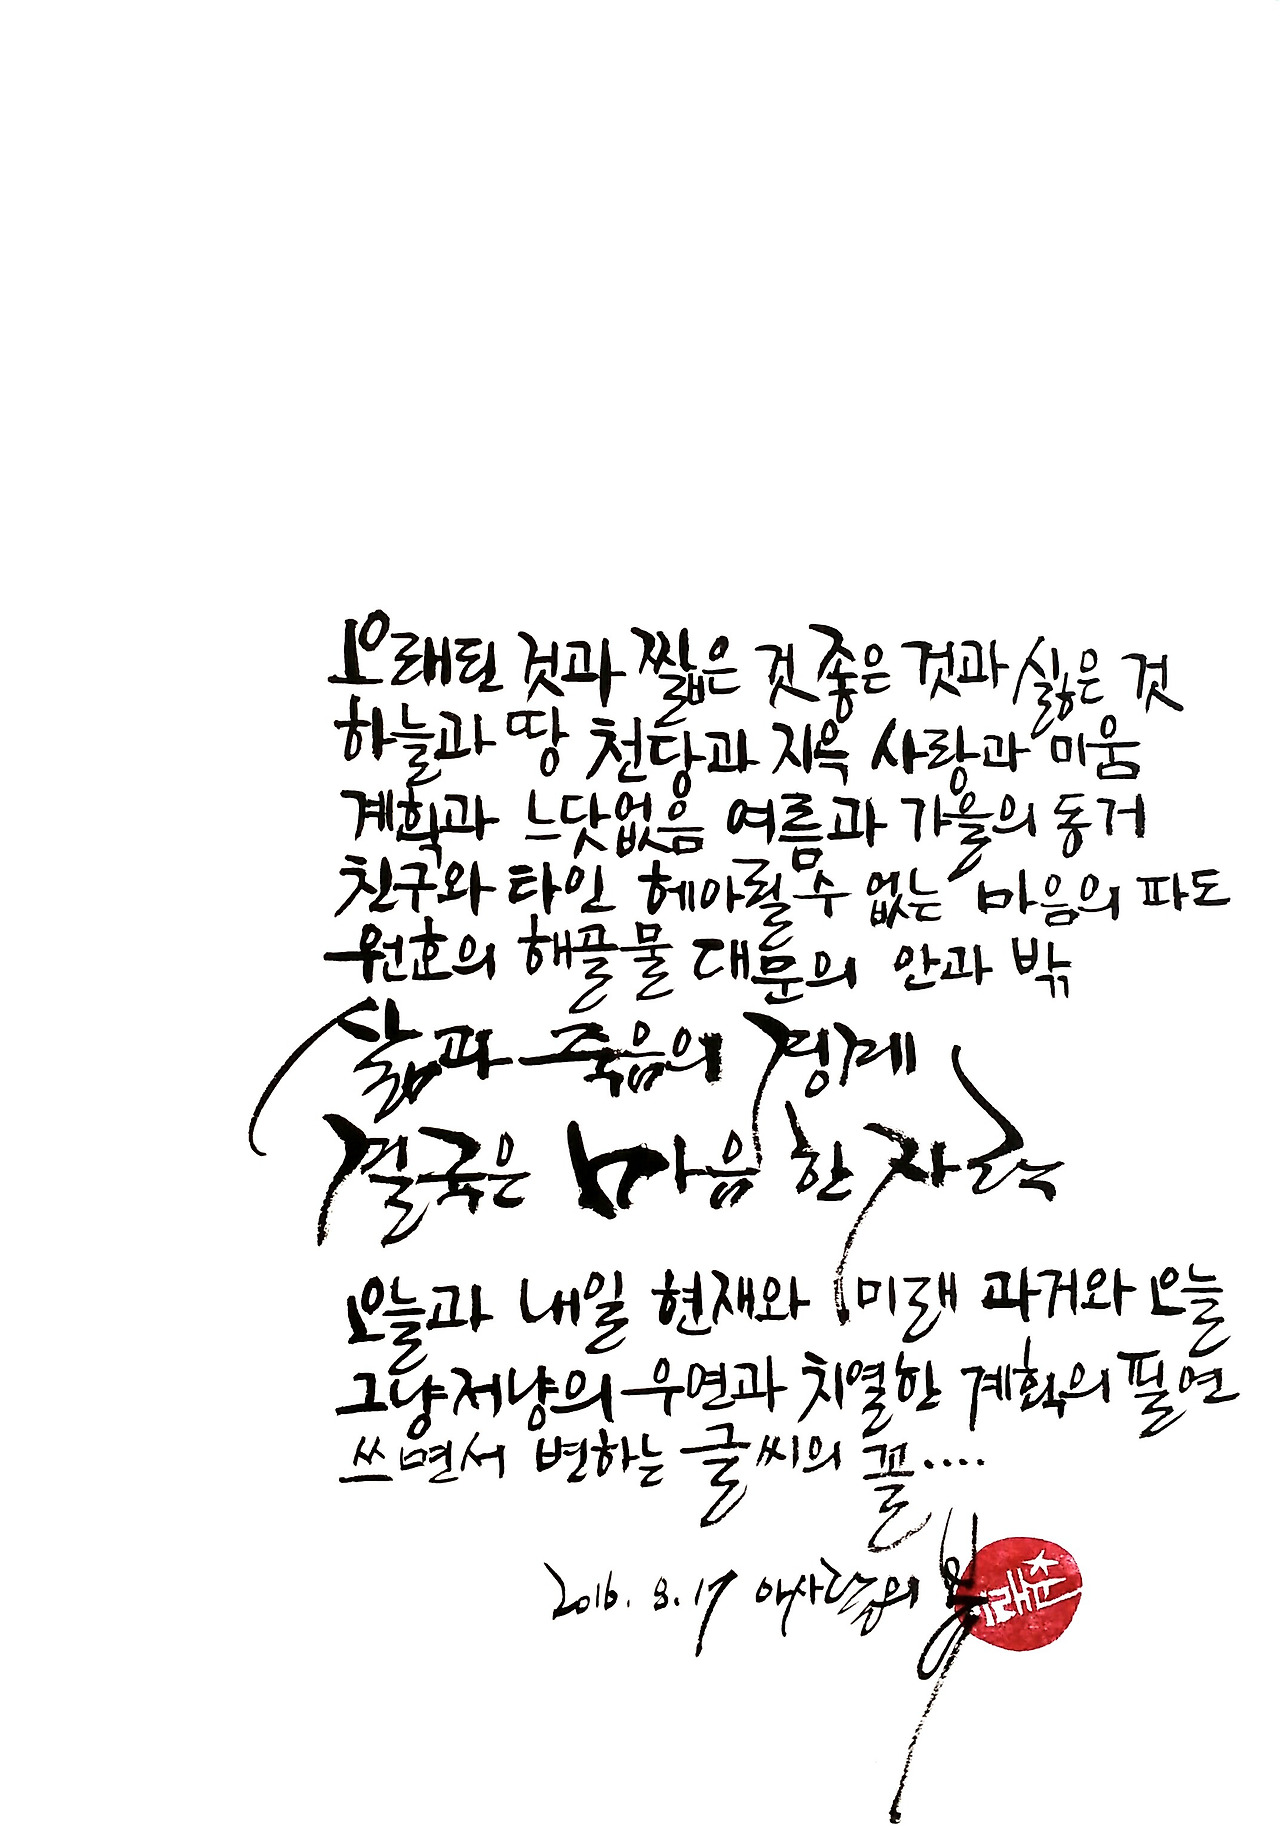 오래된 것과 짧은 것 좋은 것과 싫은 것
하늘과 땅 천당과 지옥 사랑과 미움
계획과 느닷없음 여름과 가을의 동거
친구와 타인 헤아릴 수 없는 마음의 파도
원효의 해골물 대문의 안과 밖
삶과 죽음의 경계
결국은 마음 한 자락
오늘과 내일 현재와 미래 과거와 오늘
그냥저냥의 우연과 치열한 계획의 필연
쓰면서 변하는 글씨의 꼴....
2016. 8. 17